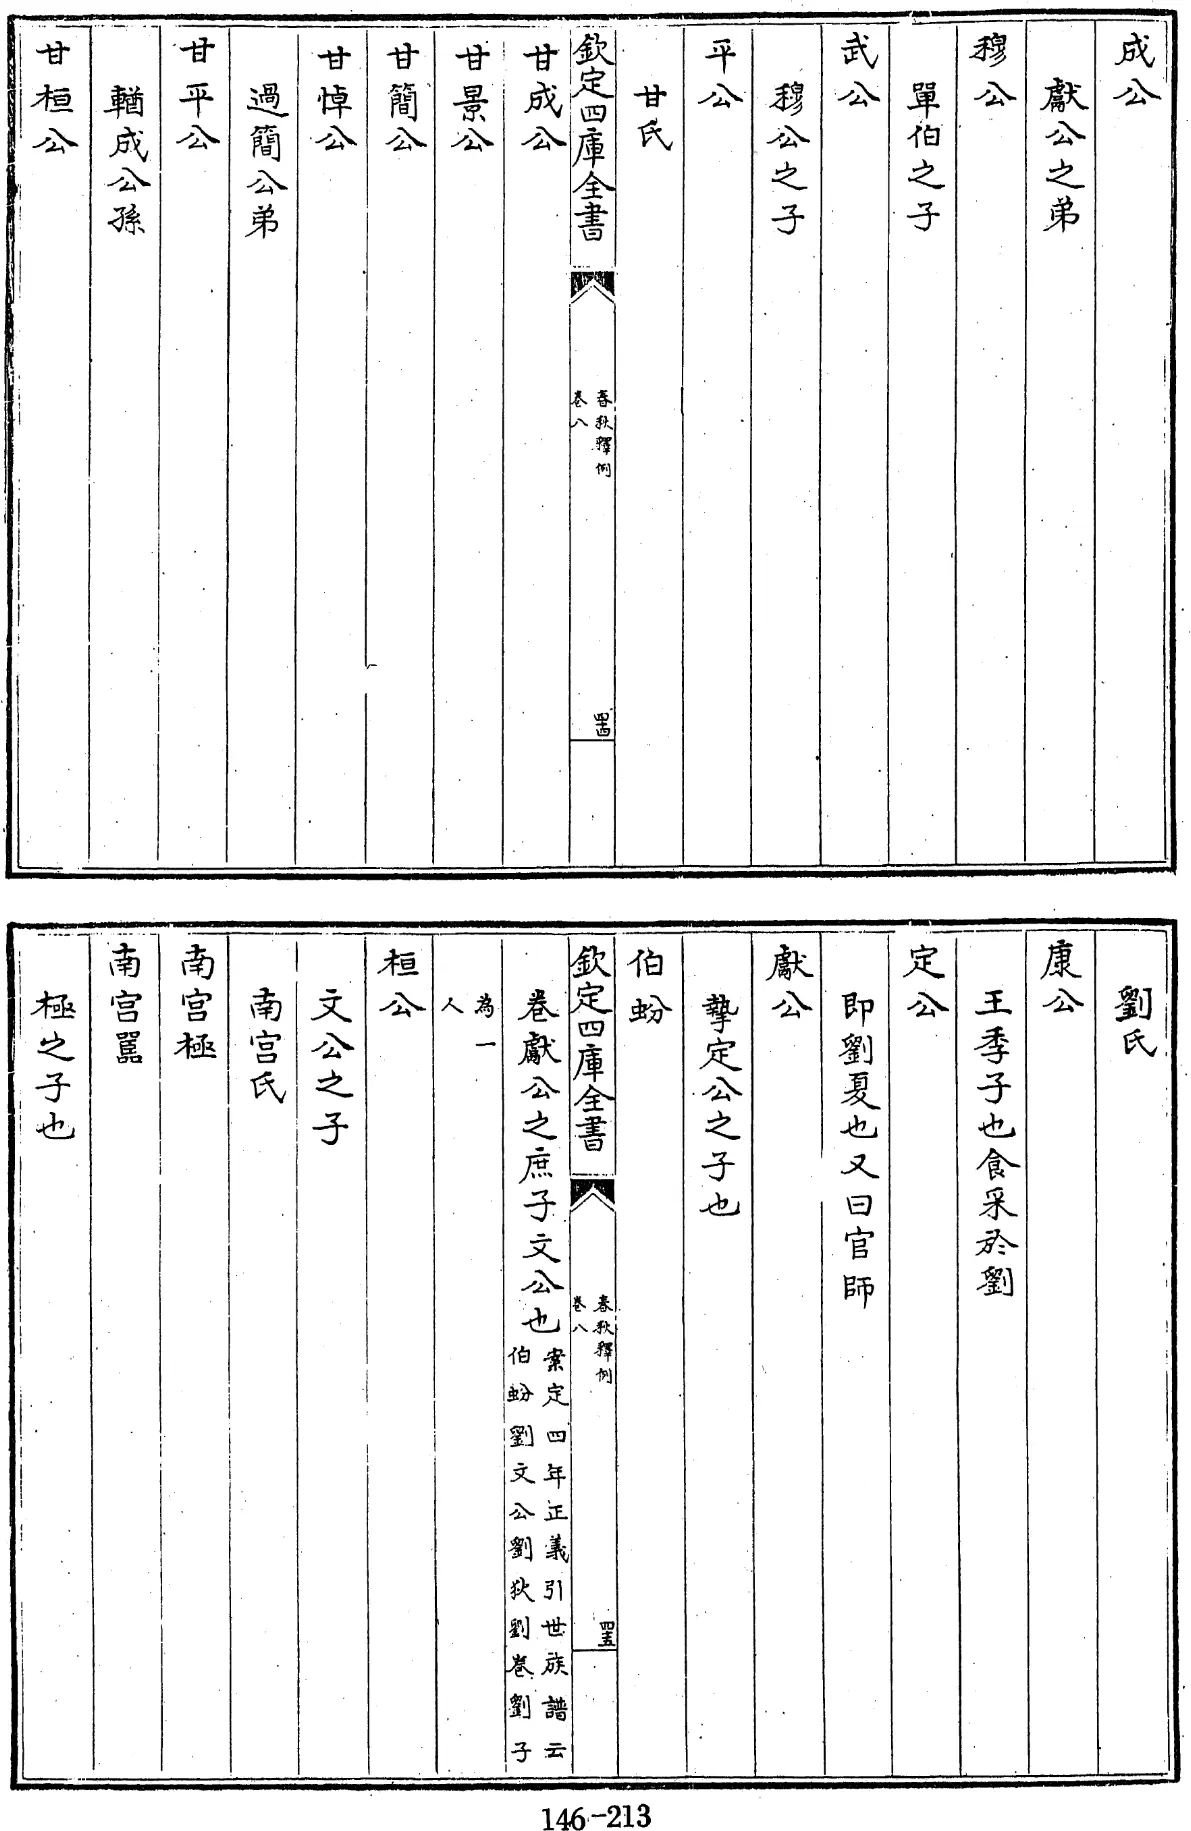 成公
獻公之弟
穆公
單伯之子
武公
穆公之子
平公
甘氏
欽定四庫全書
春秋釋例
卷八
四十四
甘成公
甘景公
甘簡公
甘悼公
過簡公弟
甘平公
鰌成公孫
甘桓公
劉氏
康公
王季子也食采於劉
定公
即劉夏也又曰官師
獻公
摯定公之子也
伯蚡
欽定四庫全書
春秋釋例
卷八
四十五
卷獻公之庶子文公也
案定四年正義引世族譜云
伯蚡劉文公劉狄劉卷劉子
為一
人
桓公
文公之子
南宮氏
南宮極
南宮嚚
極之子也
146-213